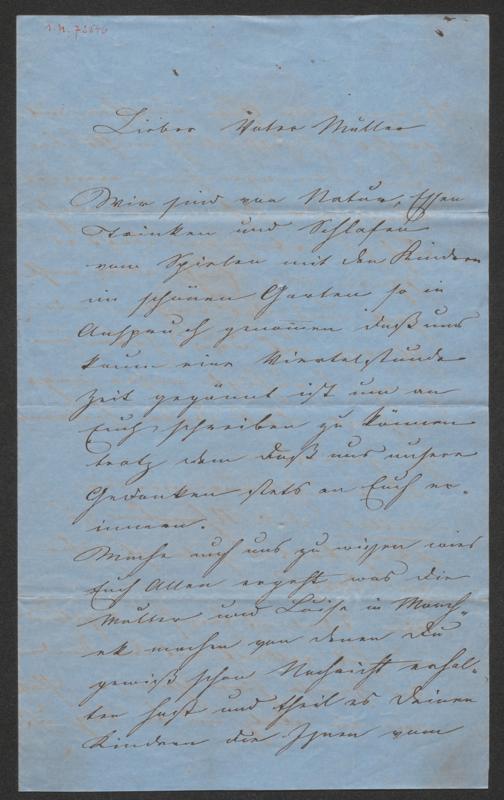 Lieber Vater Müller
Wir sind von Natur, Essen
Trinken und Schlafen
vom Spielen mit den Kindern
im schönen Garten so in
Anspruch genommen daß uns
kaum eine Viertelstunde
Zeit gegönnt ist um an
Euch schreiben zu können
trotz dem daß uns unsere
Gedanken stets an Euch er-
innern.
Mache auch uns zu wissen wies
Euch Allen ergeht was die
Mutter und Luise in
machen von denen Du
gewiß schon Nachricht erhal-
ten hast und theil es Deinen
Kindern die Ihnen vom